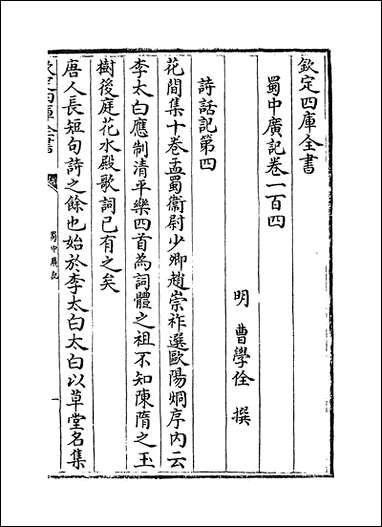 欽定四庫全書
蜀中廣記卷一百四
明 曹學佺 撰
詩話記第四
花間集十卷孟蜀衞尉少卿趙崇祚選歐陽烱序内云
李太白應制清平樂四首為詞體之祖不知陳隋之玉
樹後庭花水殿歌詞已有之矣
唐人長短句詩之餘也始於李太白太白以草堂名集
蜀中廣記
一